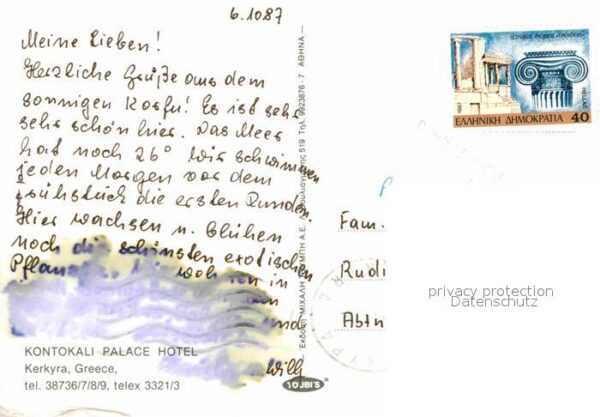 6.10.87
Meine Lieben!
Herzliche Grüße aus dem
sonnigen Korfu! Es ist sehr
sehr schön hier. Das Meer
hat noch 26° Wir schwimmen
jeden Morgen vor dem
Frühstück die ersten Runden.
Hier wachsen u. blühen
noch die schönsten exotischen
in
Willy
KONTOKALI PALACE HOTEL
Kerkyra, Greece,
tel. 38736/7/8/9, telex 3321/3
519 Τηλ. 9923876 - 7 ΑΘΗΝΑ
ΜΙΧΑΛΗ
Α.Ε.
ΕΛΛΗΝΙΚΗ ΔΗΜΟΚΡΑΤΙΑ 40
1987
HELLAS
Fam.
Rudi
Abtn
privacy protection
Datenschutz